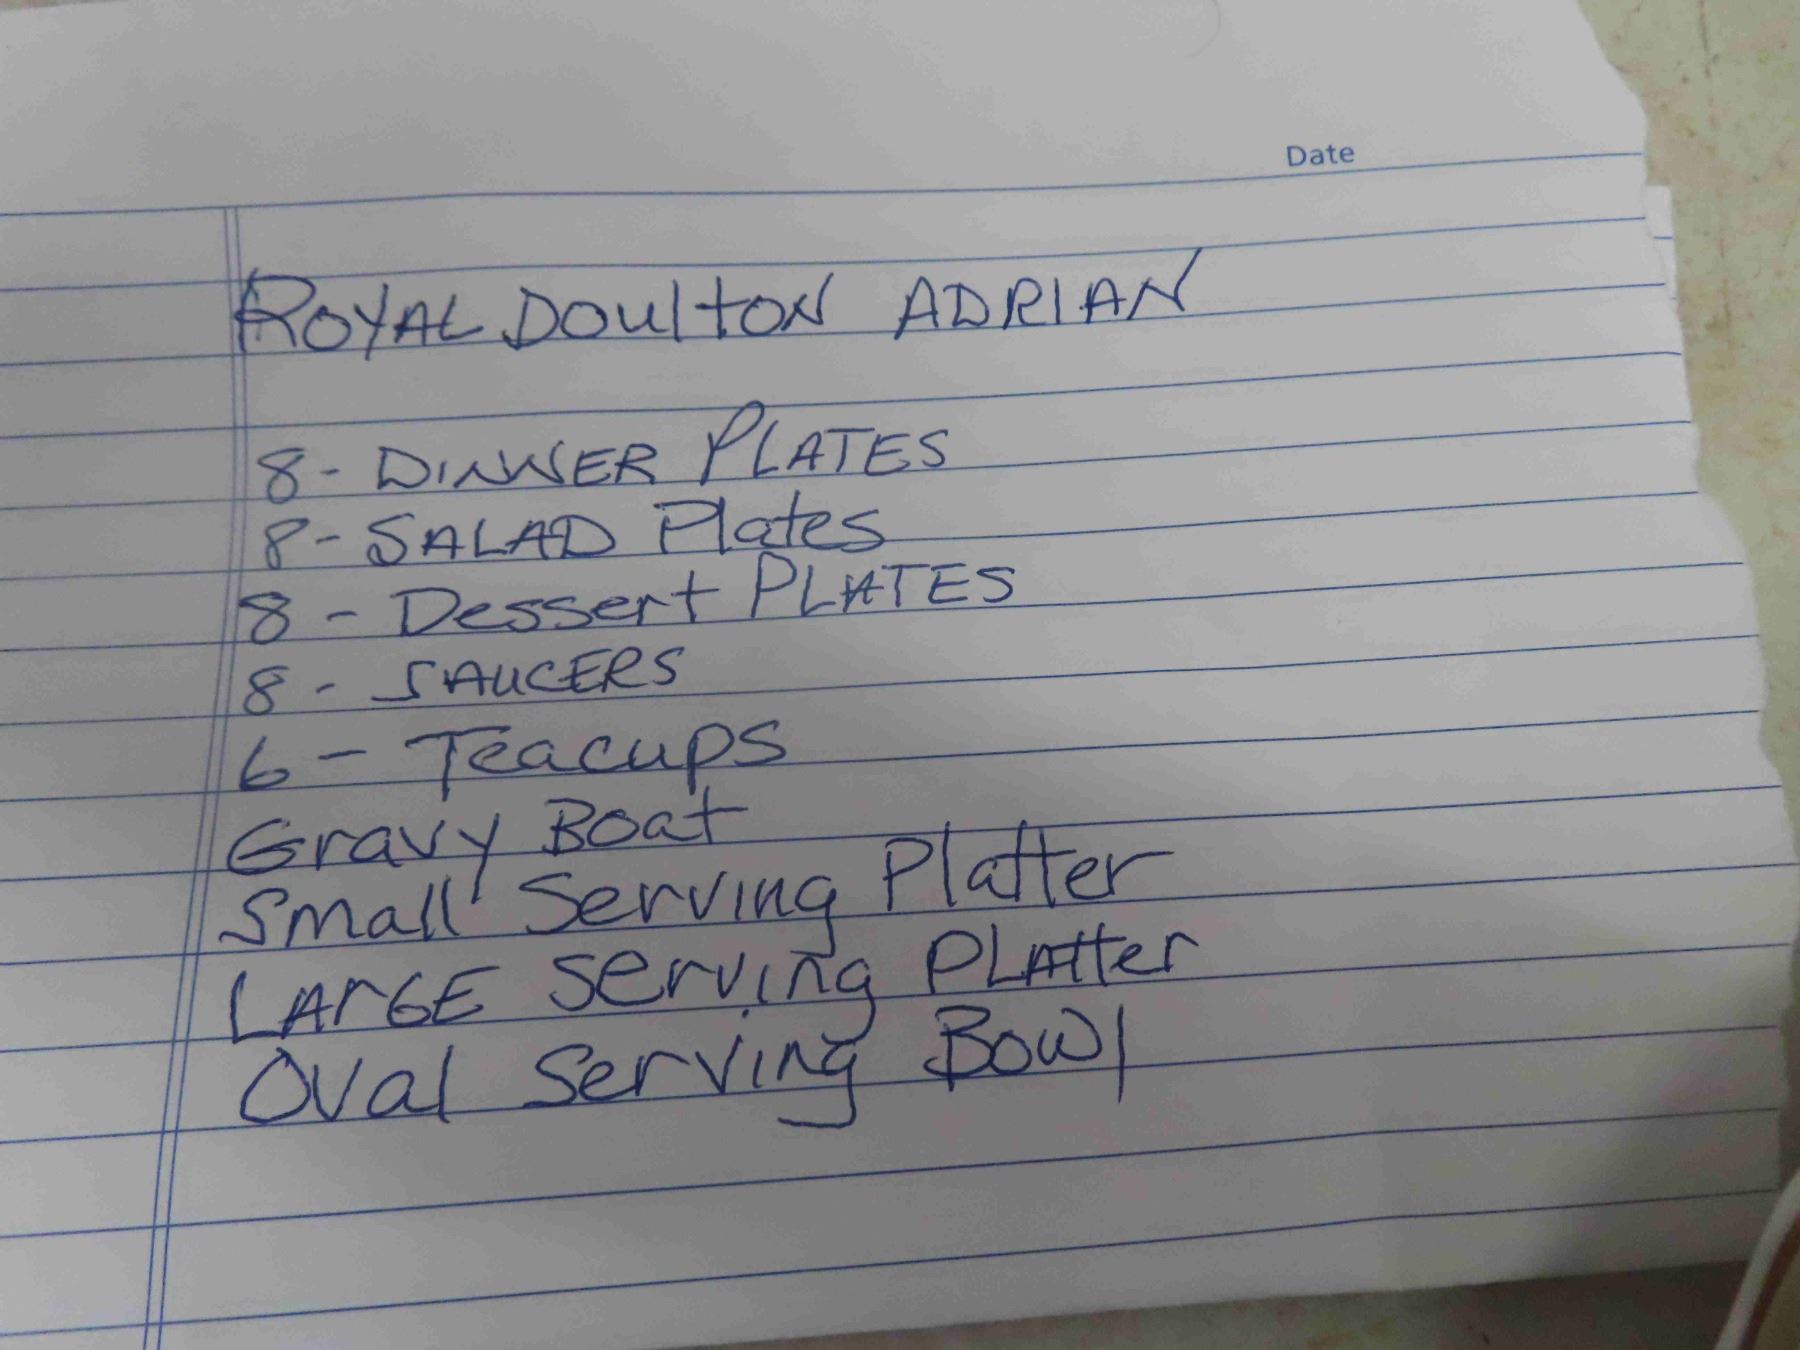 Date
ROYAL DOULTON ADRIAN
8 - DINNER PLATES
8 - SALAD Plates
8 - Dessert PLATES
8 - SAUCERS
6 - Teacups
Gravy Boat
Small Serving Platter
LARGE Serving PLATTer
Oval Serving Bowl